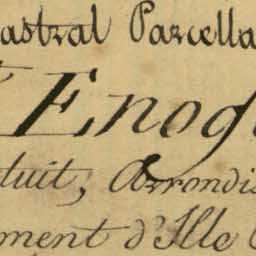 astral Parcella
t Enog
duit, Arrondis
ment d'Ille